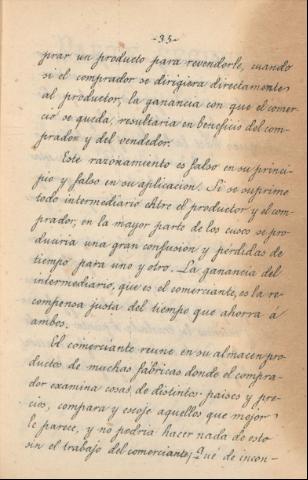 -35-
prar un producto para revenderle, cuando
si el comprador se dirigiera directamente
al productor, la ganancia con que el comer-
cio se queda, resultaria en beneficio del com-
prador y del vendedor.
Este razonamiento es falso en su princi-
pio y falso en su aplicacion. Si se suprime
todo intermediario entre el productor y el com-
prador, en la mayor parte de los casos se pro-
duciria una gran confusion y pérdidas de
tiempo para uno y otro. La ganancia del
intermediario, que es el comerciante, es la re-
compensa justa del tiempo que ahorra á
ambos.
El comerciante reune en su almacen pro-
ductos de muchas fabricas donde el compra-
dor examina cosas de distintos paises y pre-
cios, compara y escoje aquellos que mejor
le parece, y no podria hacer nada de esto
sin el trabajo del comerciante; ¡Qué de incon-